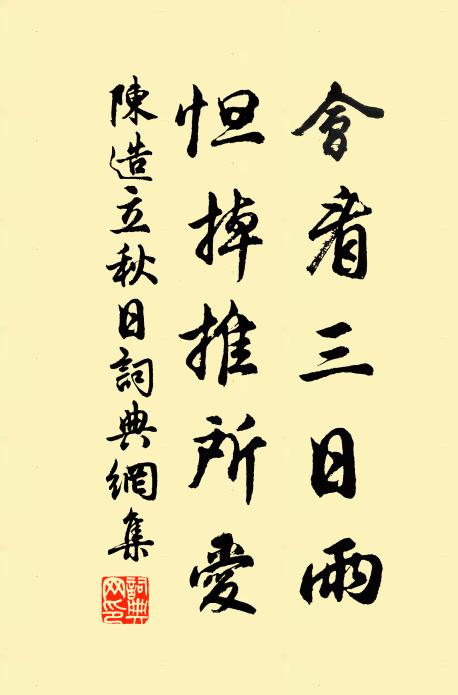 會看三日雨
怛掉推所愛
陳造立秋日詞典網集